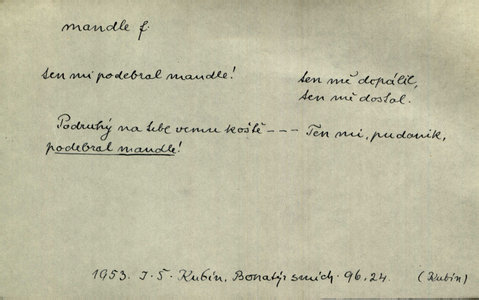 mandle f.
ten mi podebral mandle! ten mě dopálil,
ten mě dostal.
Podruhý na tebe vemu koště --- Ten mi, pudouik,
podebral mandle!
1953. J. Š. Kubín, Bonatýr smích. 96, 24. (Kubín)